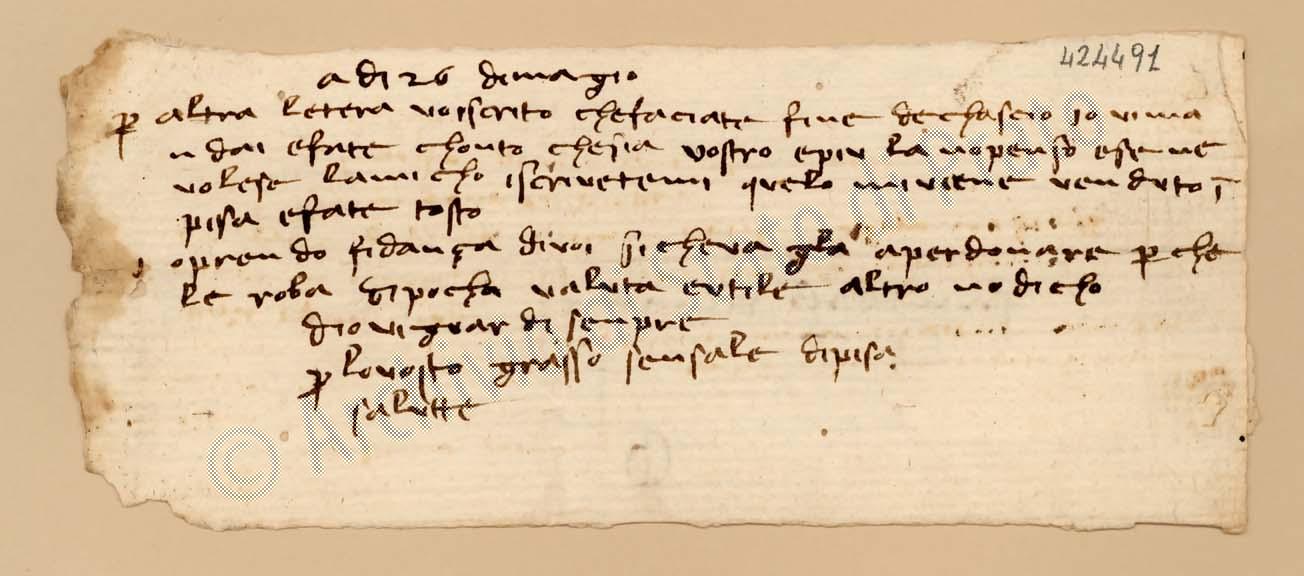 424491
a di 26 di magio
p altra letera voi scrito che faciate fine de chascio io vi ma
ndai e fate chonto che sia vostro e piu la no penso e se ne
volese l amicho iscrivetemi quelo mi viene venduto i
pisa e fate tosto
o prendo fidança di voi si che va gla a perdonare p che
le roba di pocha valuta e utile altro no dicho
dio vi guardi senpre
p lo vosto grasso sensale di pisa
salutte
© Archivio di Stato di Prato